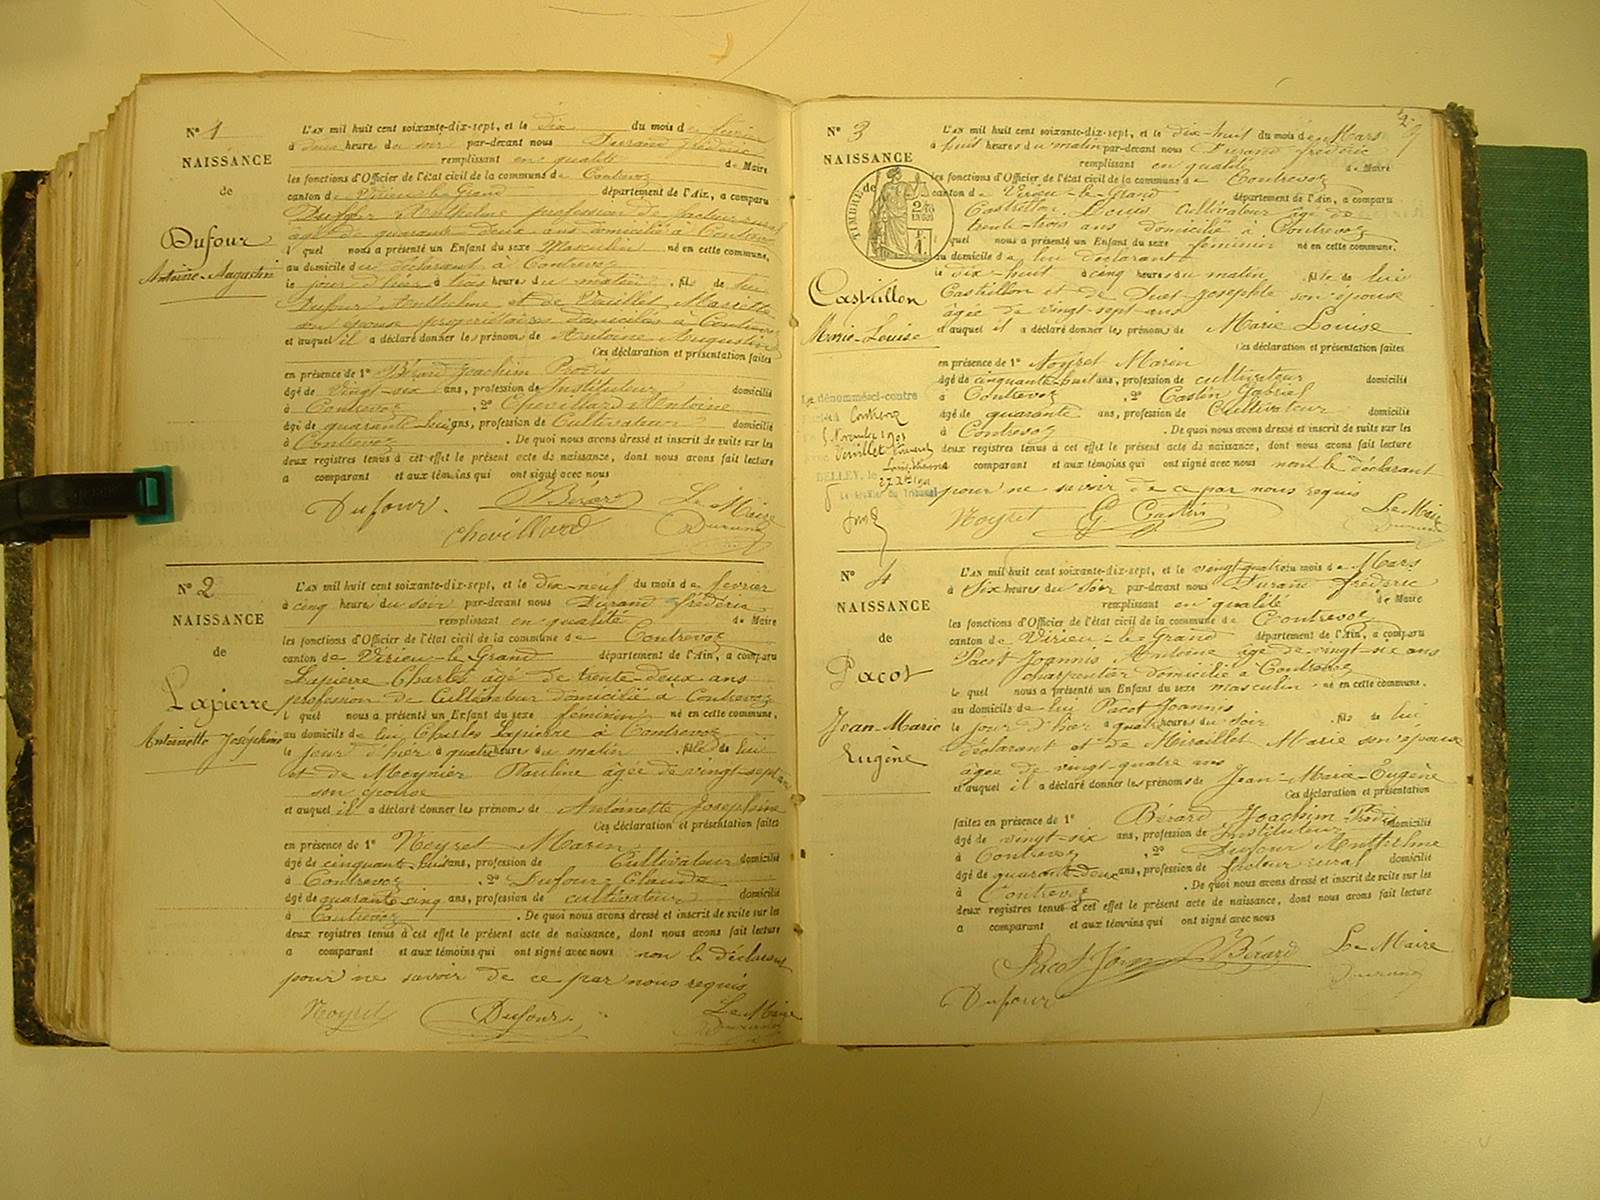 N° 1
NAISSANCE
de
Dufour
Antoine-Augustin
L'AN mil huit cent soixante-dix-sept, et le dix du mois de février
à deux heures du soir par-devant nous Durand frédéric
remplissant en qualité de Maire
les fonctions d'Officier de l'état civil de la commune de Contrevoz
canton de Virieu-le-Grand département de l'Ain, a comparu
Dufour Anthelme profession de facteur rural
âgé de quarante deux ans domicilié à Contrevoz
lequel nous a présenté un Enfant du sexe Masculin né en cette commune,
au domicile du déclarant à Contrevoz
le jour d'hier à trois heures du matin, fils de lui
Dufour Anthelme et de Mariette
son épouse propriétaires domiciliés à Contrevoz
et auquel il a déclaré donner les prénoms de Antoine Augustin
Ces déclaration et présentation faites
en présence de 1° Bérard Joachim
âgé de vingt-six ans, profession de Instituteur domicilié
à Contrevoz, 2° Chevillard Antoine
âgé de quarante ans, profession de Cultivateur domicilié
à Contrevoz. De quoi nous avons dressé et inscrit de suite sur les
deux registres tenus à cet effet le présent acte de naissance, dont nous avons fait lecture
a comparant et aux témoins qui ont signé avec nous
Dufour. Bérard Le Maire
Chevillard Durand
N° 2
NAISSANCE
de
Lapierre
Antoinette Josephine
L'AN mil huit cent soixante-dix-sept, et le dix-neuf du mois de février
à cinq heures du soir par-devant nous Durand frédéric
remplissant en qualité de Maire
les fonctions d'Officier de l'état civil de la commune de Contrevoz
canton de Virieu-le-Grand département de l'Ain, a comparu
Lapierre Charles âgé de trente-deux ans
profession de Cultivateur domicilié à Contrevoz
lequel nous a présenté un Enfant du sexe féminin né en cette commune,
au domicile de lui Charles Lapierre à Contrevoz
le jour d'hier à quatre heures du matin, fille de lui
et de Meynier Pauline âgée de vingt-sept ans
son épouse
et auquel il a déclaré donner les prénoms de Antoinette Josephine
Ces déclaration et présentation faites
en présence de 1° Noyret Marin
âgé de cinquante-huit ans, profession de Cultivateur domicilié
à Contrevoz, 2° Dufour Claude
âgé de quarante cinq ans, profession de cultivateur domicilié
à Contrevoz. De quoi nous avons dressé et inscrit de suite sur les
deux registres tenus à cet effet le présent acte de naissance, dont nous avons fait lecture
a comparant et aux témoins qui ont signé avec nous non le déclarant
pour ne savoir de ce par nous requis
Noyret Dufour Le Maire
Durand
N° 3
NAISSANCE
de
TIMBRE
Castillon
Marie-Louise
L'AN mil huit cent soixante-dix-sept, et le dix-huit du mois de Mars
à huit heures du matin par-devant nous Durand frédéric
remplissant en qualité de Maire
les fonctions d'Officier de l'état civil de la commune de Contrevoz
canton de Virieu-le-Grand département de l'Ain, a comparu
Castillon Louis Cultivateur âgé de
trente-trois ans domicilié à Contrevoz
lequel nous a présenté un Enfant du sexe féminin né en cette commune,
au domicile de lui déclarant
le dix-huit à cinq heures du matin, fille de lui
Castillon et de Josephte son épouse
âgée de vingt-sept ans
et auquel il a déclaré donner les prénoms de Marie Louise
Ces déclaration et présentation faites
en présence de 1° Noyret Marin
âgé de cinquante-huit ans, profession de cultivateur domicilié
à Contrevoz, 2° Castin Gabriel
âgé de quarante ans, profession de Cultivateur domicilié
à Contrevoz. De quoi nous avons dressé et inscrit de suite sur les
deux registres tenus à cet effet le présent acte de naissance, dont nous avons fait lecture
a comparant et aux témoins qui ont signé avec nous nont le déclarant
pour ne savoir de ce par nous requis
Noyret G Castin Le Maire
Durand
dénommé ci-contre
Contrevoz
Novembre
BELLEY, le
Le Greffier du Tribunal
N° 4
NAISSANCE
de
Pacot
Jean-Marie
Eugène
L'AN mil huit cent soixante-dix-sept, et le vingt-quatre du mois de Mars
à six heures du soir par-devant nous Durand frédéric
remplissant en qualité de Maire
les fonctions d'Officier de l'état civil de la commune de Contrevoz
canton de Virieu-le-Grand département de l'Ain, a comparu
Pacot Joannis Antoine âgé de vingt-six ans
charpentier domicilié à Contrevoz
lequel nous a présenté un Enfant du sexe masculin né en cette commune,
au domicile de lui Pacot Joannis
le jour d'hier à quatre heures du soir, fils de lui
déclarant et de Miraillet Marie son épouse
âgée de vingt-quatre ans
et auquel il a déclaré donner les prénoms de Jean-Marie-Eugène
Ces déclaration et présentation
faites en présence de 1° Bérard Joachim
âgé de vingt-six ans, profession de Instituteur domicilié
à Contrevoz, 2° Dufour Anthelme
âgé de quarante-deux ans, profession de facteur rural domicilié
à Contrevoz. De quoi nous avons dressé et inscrit de suite sur les
deux registres tenus à cet effet le présent acte de naissance, dont nous avons fait lecture
a comparant et aux témoins qui ont signé avec nous
Pacot Bérard Le Maire
Dufour Durand